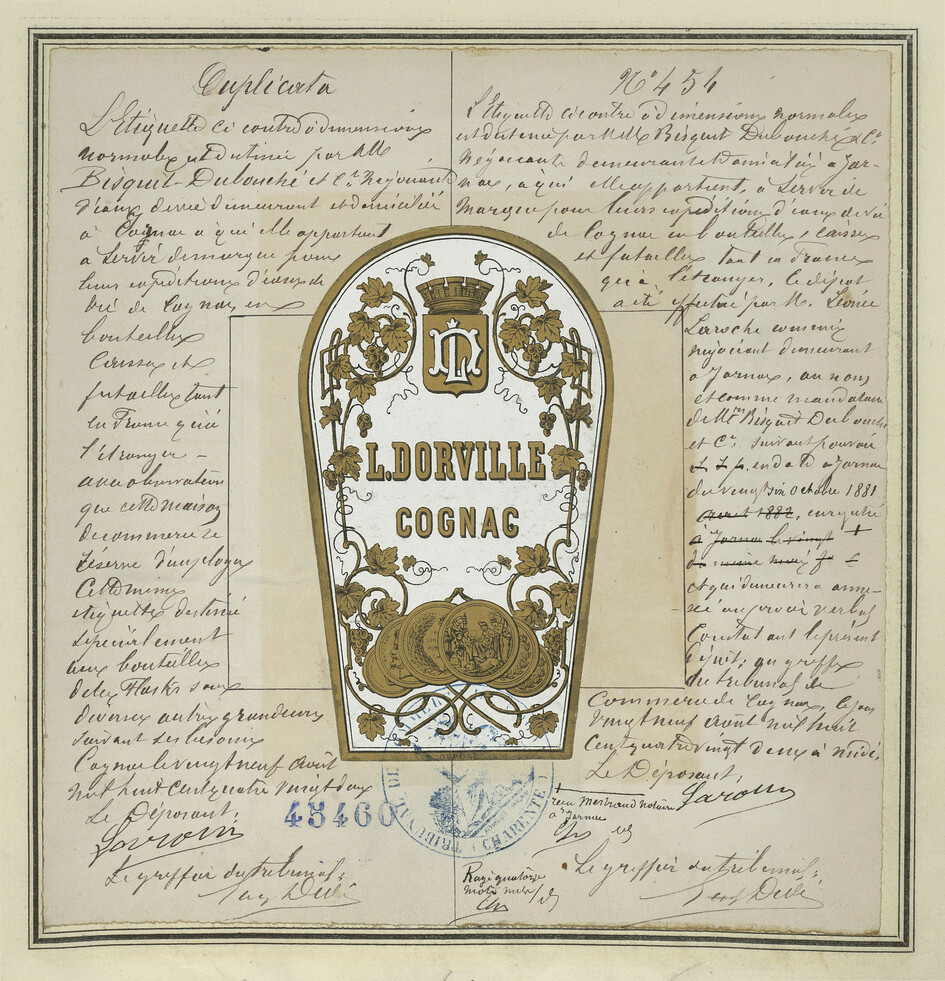 Duplicata
L'Etiquette ci contre à dimensions
normales est destinée par MM
Bisquit-Dubouché et Cie Négociants
d'eaux de vie demeurant et domiciliés
à Cognac à qui elle appartient
à servir de marque pour
leurs expéditions d'eaux de
vie de Cognac en
bouteilles
Caisses et
futailles tant
en France qu'à
l'étranger -
avec observation
que cette maison
de commerce se
réserve d'employer
Cette même
étiquette destinée
spécialement
aux bouteilles
et les Flasks sous
diverses autres grandeurs
suivant ses besoins
Cognac le vingt neuf Août
mil huit cent quatre vingt deux
Le Déposant,
Laroche
Le greffier du tribunal,
N° 454
L'Etiquette ci contre à dimensions normales
est destinée par MM Bisquit Dubouché & Cie
Négociants demeurant et domiciliés à Jar-
nac, à qui elle appartient, à servir de
Marque pour leurs expéditions d'eaux de vie
de Cognac en bouteilles, caisses
et futailles tant en France
qu'à l'étranger, le dépôt
a été effectué par M. Léonce
Laroche commis
négociant demeurant
à Jarnac, au nom
et comme mandataire
de MMrs Bisquit Dubouché
et Cie suivant pouvoir
s. s. p. en date à Jarnac
du vingt six Octobre 1881
août 1882, enregistré
à Jarnac le vingt
du même mois fo c
et qui demeurera anne-
xé au procès verbal
Constatant le présent
dépôt; au greffe
du tribunal de
Commerce de Cognac, le jour
vingt neuf Août mil huit
Cent quatre vingt deux à midi,
Le Déposant,
Laroche
L. DORVILLE
COGNAC
45460
TRIBUNAL DE
(CHARENTE)
reçu Mesnard Notaire
à Jarnac
Rayé quatorze
mots nuls
Le greffier du tribunal,